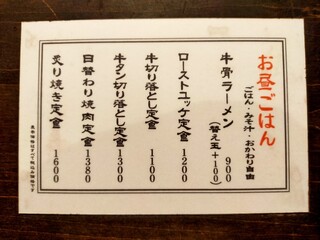 お昼ごはん
ごはん・みそ汁・おかわり自由
牛骨ラーメン 900
(替え玉+100)
ローストユッケ定食 1200
牛切り落とし定食 1100
牛タン切り落とし定食 1300
日替わり焼肉定食 1380
炙り焼き定食 1600